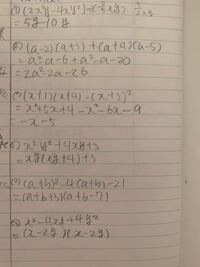 (2x²y-4xy²)÷(2/5xy)
=5y-10y
(2) (a-2)(a+3)+(a+4)(a-5)
=a²+a-6+a²-a-20
=2a²-2a-26
(x+1)(x+4)-(x+3)²
=x²+5x+4-x²-6x-9
=-x-5
x²y²+4xy+3
=xy(xy+4)+3
(a+b)²-4(a+b)-21
=(a+b+3)(a+b-7)
x²-4xy+4y²
=(x-2y)(x-2y)